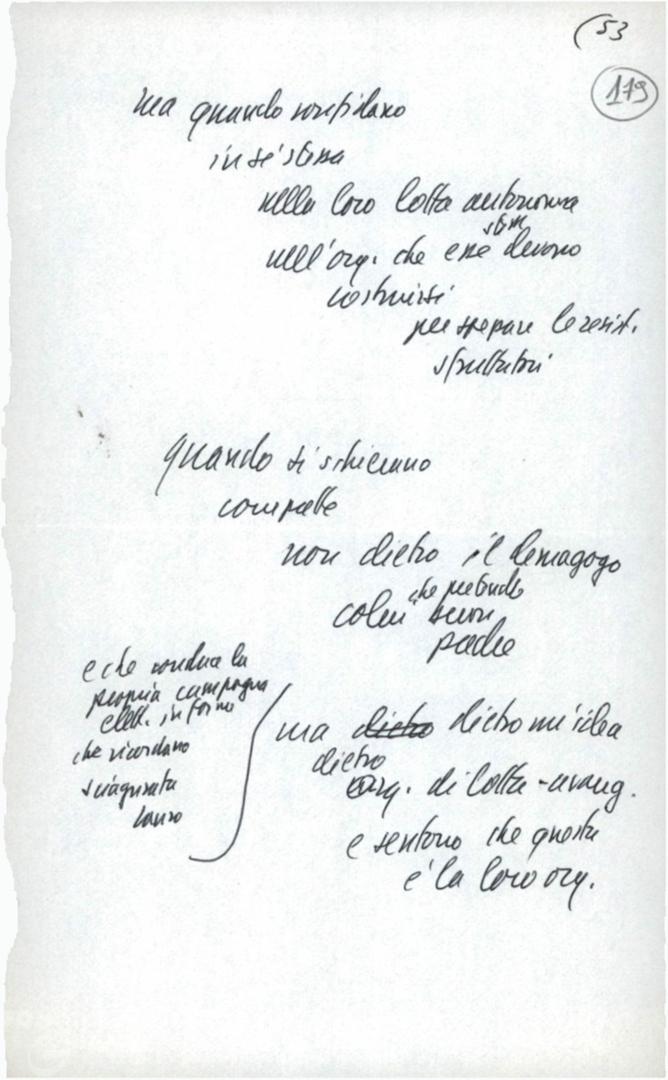 (53
179
ma quando confidano
in se' stesse
nella loro lotta autonoma
nell'org. che esse stesse devono
costruirsi
per spezzare le resist.
sfruttatori
quando si schierano
compatte
non dietro il demagogo
colui che pretende
buon
padre
e che conduce la
propria campagna
elett. in forme
che ricordano
sciagurata
Lauro
ma dietro dietro un'idea
dietro
org. di lotta-avang.
e sentono che questa
è la loro org.